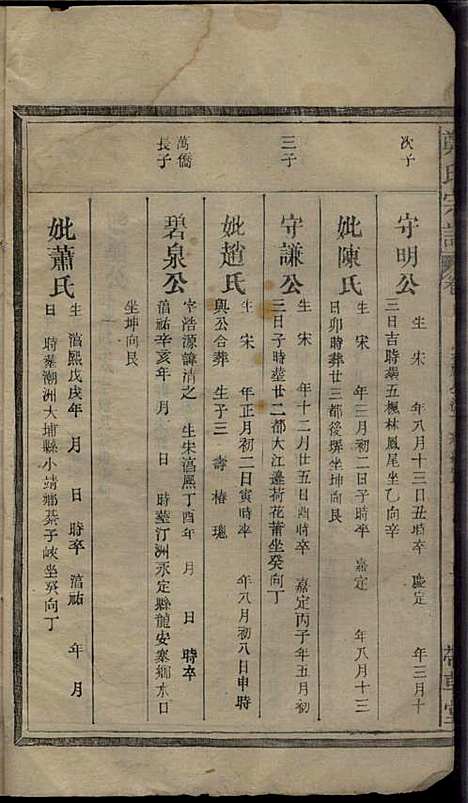 鄭氏宗譜
次子
守明公
生 宋 年八月十三日丑時卒 慶定 年三月十
三日吉時葬五楓林鳳尾坐乙向辛
妣陳氏
生 宋 年三月初二日子時卒 嘉定 年八月十三
日卯時葬廿三都後墘坐坤向艮
三子
守謙公
生 宋 年十二月廿五日酉時卒 嘉定丙子年五月初
三日子時葬廿二都大江邊荷花莆坐癸向丁
妣趙氏
生 宋 年正月初二日寅時卒 年八月初八日申時
與公合葬 生子三 壽 椿 璁
萬僑
長子
碧泉公
字浩源諱清之 生宋淳熙丁酉年 月 日 時卒
淳祐辛亥年 月 日 時葬汀洲永定縣龍安寨鄉東日
坐坤向艮
妣蕭氏
生 淳熙戊戌年 月 日 時卒 淳祐 年 月
日 時葬潮洲大埔縣小靖鄉葵子峽坐癸向丁